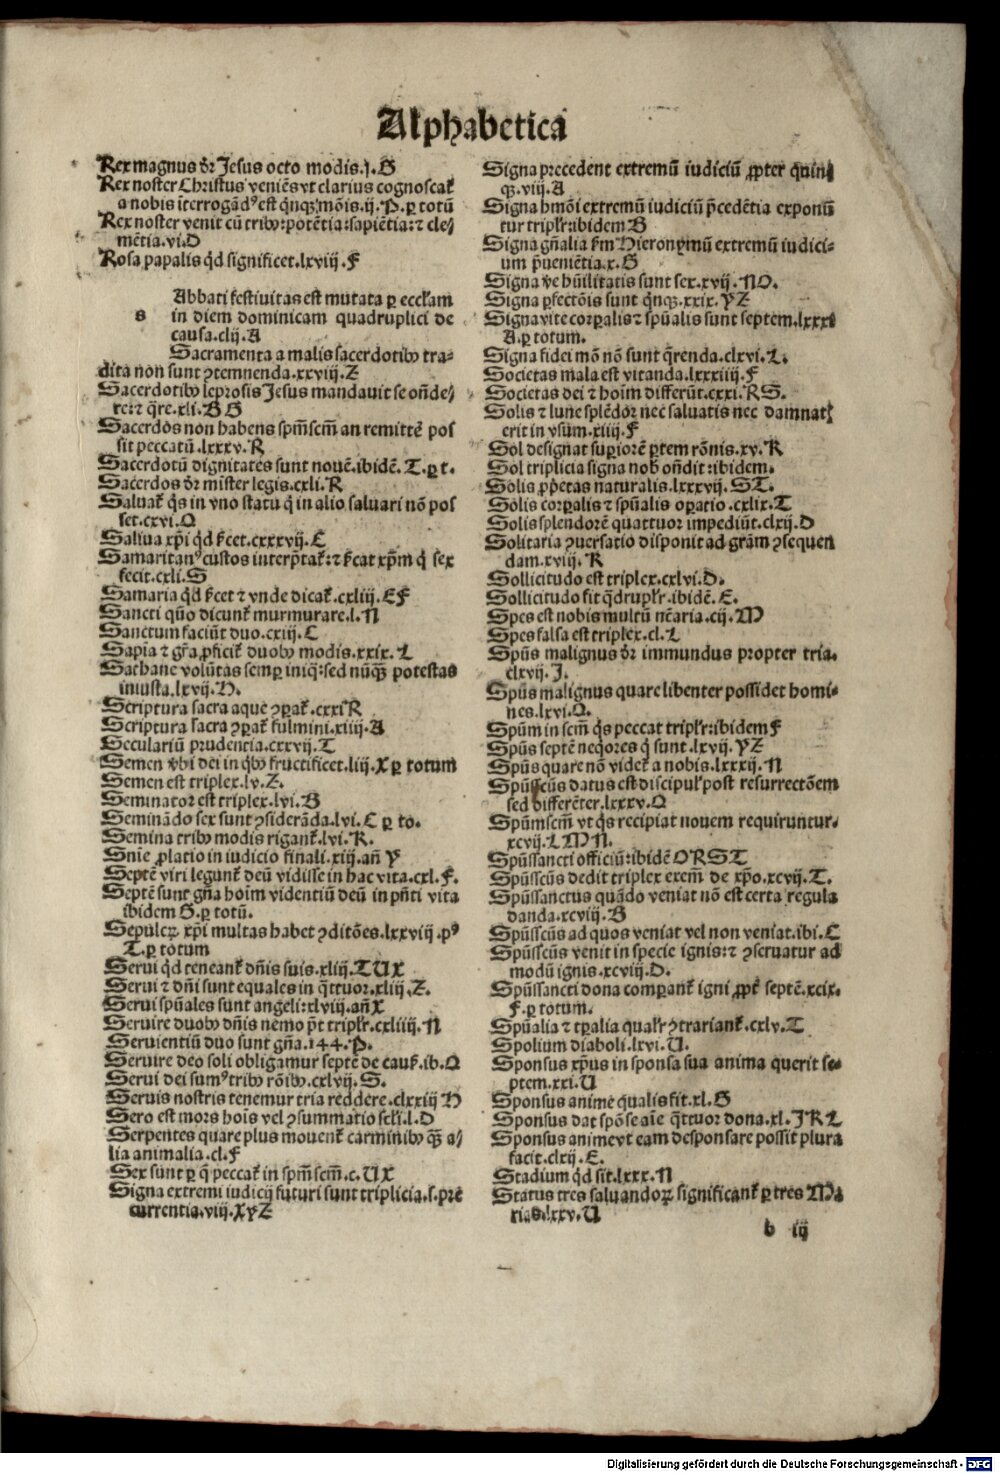 Alphabetica
Rex magnus dr̄ Jesus octo modis.j.G
Rex noster Christus veniēs vt clarius cognoscat᷑
a nobis īterrogādꝰ est q̄nqꝫ mōis.ij.P.ꝑ totū
Rex noster venit cū tribꝰ:potētia:sapiētia:⁊ cle/
mētia.vi.D
Rosa papalis qd̄ significet.lxviij.F
Abbati festiuitas est mutata ꝑ eccl̄am
s in diem dominicam quadruplici de
causa.clij.A
Sacramenta a malis sacerdotibꝰ tra⸗
dita non sunt ꝯtemnenda.xxviij.Z
Sacerdotibꝰ leprosis Jesus mandauit se on̄de⸗
re:⁊ q̄re.xli.B G
Sacerdos non habens spm̄scm̄ an remittē pos
sit peccatū.lxxxv.R
Sacerdotū dignitates sunt nouē.ibidē.T.ꝑ t.
Sacerdos dr̄ mister legis.cxli.R
Saluat᷑ q̄s in vno statu q̄ in alio saluari nō pos
set.cxvi.Q
Saliua xp̄i qd̄ s̄cet.cxxxvij.C
Samaritanꝰ custos interp̄tat᷑:⁊ s̄cat xp̄m q̄ sex
fecit.cxli.S
Samaria qd̄ s̄cet ⁊ vnde dicat᷑.cxliij.E F
Sancti quō dicunt᷑ murmurare.l.N
Sanctum faciūt duo.cxiij.C
Sapīa ⁊ gr̄a ꝓficit᷑ duobꝰ modis.xxix.L
Sathane volūtas semꝑ iniq̄:sed nūqꝫ potestas
iniusta.lxvij.H.
Scriptura sacra aque ꝯꝑat᷑.cxxi R
Scriptura sacra ꝯꝑat᷑ fulmini.xiiij.A
Seculariū prudentia.cxxvij.T
Semen vbi dei in qͦbꝰ fructificet.liij.X ꝑ totum
Semen est triplex.lv.Z.
Seminator est triplex.lvi.B
Seminādo sex sunt ꝯsiderāda.lvi.C ꝑ to.
Semina tribꝰ modis rigant᷑.lvi.R.
Snīe ꝓlatio in iudicio finali.xiij.an̄ Y
Septē viri legunt᷑ deū vidisse in hac vita.cxl.F.
Septē sunt gn̄a hoīm videntiū deū in pn̄ti vita
ibidem G.ꝑ totū.
Sepulcꝝ xp̄i multas habet ꝯditōes.lxxviij.pꝰ
T.ꝑ totum
Serui qd̄ teneant᷑ dn̄is suis.xliij.T U X
Serui ⁊ dn̄i sunt equales in q̄ttuor.xliij.Z.
Serui spūales sunt angeli:xlviij.an̄ X
Seruire duobꝰ dn̄is nemo p̄t triplr̄.cxliiij.N
Seruientiū duo sunt gn̄a.144.P.
Seruire deo soli obligamur septē de caus̄.ib.Q
Serui dei sumꝰ tribꝰ rōibꝰ.cxlvij.S.
Seruis nostris tenemur tria reddere.clxxiij H
Sero est mors hoīs vel ꝯsummatio scl̄i.l.D
Serpentes quare plus mouent᷑ carminibꝰ qꝫ a/
lia animalia.cl.F
Sex sunt ꝑ q̄ peccat᷑ in spm̄ scm̄.c.U X
Signa extremi iudicij futuri sunt triplicia.s.pre
currentia.viij.X Y Z
Signa precedent extremū iudiciū ꝓpter quin⸗
qꝫ.viij.A
Signa hm̄ōi extremū iudiciū p̄cedētia exponū
tur triplr̄:ibidem B
Signa gn̄alia s̄m Hieronymū extremū iudici⸗
um p̄uenientia.x.G
Signa ve hūilitatis sunt sex.xvij.N O.
Signa ꝑfectōis sunt q̄nqꝫ.xxix.Y Z
Signa vite corꝑalis ⁊ spūalis sunt septem.lxxxi
A.ꝑ totum.
Signa fidei mō nō sunt q̄renda.clxvi.L.
Societas mala est vitanda.lxxxiiij.F
Societas dei ⁊ hoīm differūt.cxxi.R S.
Solis ⁊ lune splēdor nec saluatis nec damnat᷑
erit in vsum.xiiij.F
Sol designat suꝑiorē ꝑtem rōnis.xv.K
Sol triplicia signa nob̄ on̄dit:ibidem.
Solis ꝓp̄etas naturalis.lxxxvij.S T.
Solis corꝑalis ⁊ spūalis oꝑatio.cxlix.T
Solis splendorē quattuor impediūt.clxij.D
Solitaria ꝯuersatio disponit ad gr̄am ꝯsequen
dam.xviij.K
Sollicitudo est triplex.cxlvi.D.
Sollicitudo fit q̄druplr̄.ibidē.E.
Spes est nobis multū nc̄aria.cij.M
Spes falsa est triplex.cl.L
Spūs malignus dr̄ immundus propter tria.
clxvij.J.
Spūs malignus quare libenter possidet homi⸗
nes.lxvi.Q.
Spūm in scm̄ q̄s peccat triplr̄:ibidem F
Spūs septē neq̄ores q̄ sunt.lxvij.Y Z
Spūs quare nō videt᷑ a nobis.lxxxij.N
Spūsscūs datus est discipul̄ post resurrectōem
sed differēter.lxxxv.Q
Spūmscm̄ vt q̄s recipiat nouem requiruntur.
xcvij.L M N.
Spūssancti officiū:ibidē O R S T
Spūsscūs dedit triplex exem̄ de xp̄o.xcvij.T.
Spūssanctus quādo veniat nō est certa regula
danda.xcviij.B
Spūsscūs ad quos veniat vel non veniat.ibi.C
Spūsscūs venit in specie ignis:⁊ ꝯseruatur ad
modū ignis.xcviij.D.
Spūssancti dona comꝑant᷑ igni ꝓpt̄ septē.xcix.
F.ꝑ totum.
Spūalia ⁊ tꝑalia qualr̄ ꝯtrariant᷑.cxlv.T
Spolium diaboli.lxvi.U.
Sponsus xp̄us in sponsa sua anima querit se⸗
ptem.xxi.U
Sponsus anime qualis sit.xl.G
Sponsus dat spōse aīe q̄ttuor dona.xl.J K L
Sponsus anime vt eam desponsare possit plura
facit.clxij.E.
Stadium qd̄ sit.lxxx.N
Status tres saluandoꝝ significant᷑ ꝑ tres Ma
rias.lxxv.U
b iij
Digitalisierung gefördert durch die Deutsche Forschungsgemeinschaft - DFG